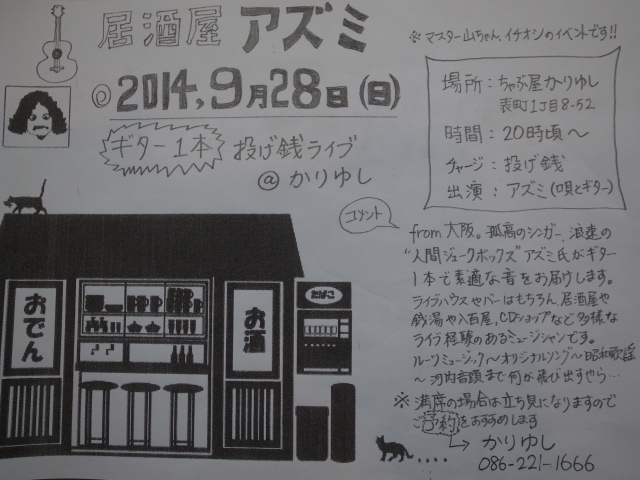 居酒屋 アズミ
@ 2014,9月28日(日)
ギター1本 投げ銭ライブ
@かりゆし
※マスター山ちゃん、イチオシのイベントです!!
場所:ちゃぶ屋かりゆし
表町1丁目8-52
時間:20時頃〜
チャージ:投げ銭
出演:アズミ(唄とギター)
コメント
from大阪。孤高のシンガー、浪速の
"人間ジュークボックス"アズミ氏がギター
1本で素適な音をお届けします。
ライブハウスやバーはもちろん、居酒屋や
銭湯や八百屋、CDショップなど多様な
ライブ経験のあるミュージシャンです。
ルーツミュージック〜オリジナルソング〜昭和歌謡
〜河内音頭まで何が飛び出すやら…
※満席の場合は立ち見になりますので
ご予約をおすすめします
かりゆし
086-221-1666
おでん
お酒
たばこ